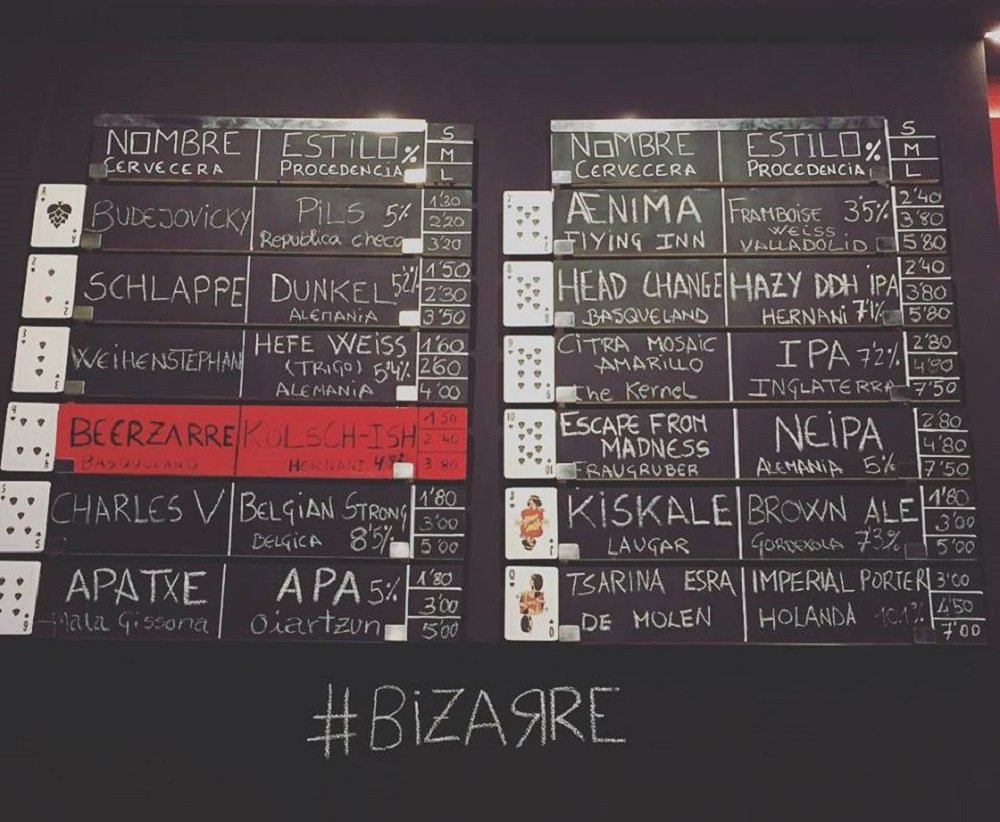 NOMBRE ESTILO % S
M
CERVECERA PROCEDENCIA L
BUDEJOVICKY PILS 5% 1'30
2'20
Republica checa 3'20
SCHLAPPE DUNKEL 5'2% 1'50
2'30
ALEMANIA 3'50
WEIHENSTEPHAN HEFE WEISS 1'60
(TRIGO) 5'4% 2'60
ALEMANIA 4'00
BEERZARRE KOLSCH-ISH 1'50
2'40
BASQUELAND HERNANI 3'80
CHARLES V BELGIAN STRONG 1'80
3'00
BELGICA 8'5% 5'00
APATXE APA 5% 1'80
3'00
Mala Gissona Oiartzun 5'00
NOMBRE ESTILO % S
M
CERVECERA PROCEDENCIA L
ÆNIMA FRAMBOISE 3'5% 2'40
WEISS 3'80
FLYING INN VALLADOLID 5'80
HEAD CHANGE HAZY DDH IPA 2'40
3'80
BASQUELAND HERNANI 7'1% 5'80
CITRA MOSAIC IPA 7'2% 2'80
AMARILLO 4'80
The Kernel INGLATERRA 7'50
ESCAPE FROM NEIPA 2'80
MADNESS 4'80
FRAUGRUBER ALEMANIA 5% 7'50
KISKALE BROWN ALE 1'80
3'00
LAUGAR GORDEXOLA 7'3% 5'00
TSARINA ESRA IMPERIAL PORTER 3'00
4'50
DE MOLEN HOLANDA 7'00
#BiZARRE